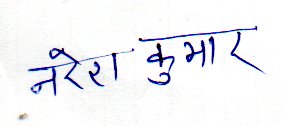 नरेश कुमार